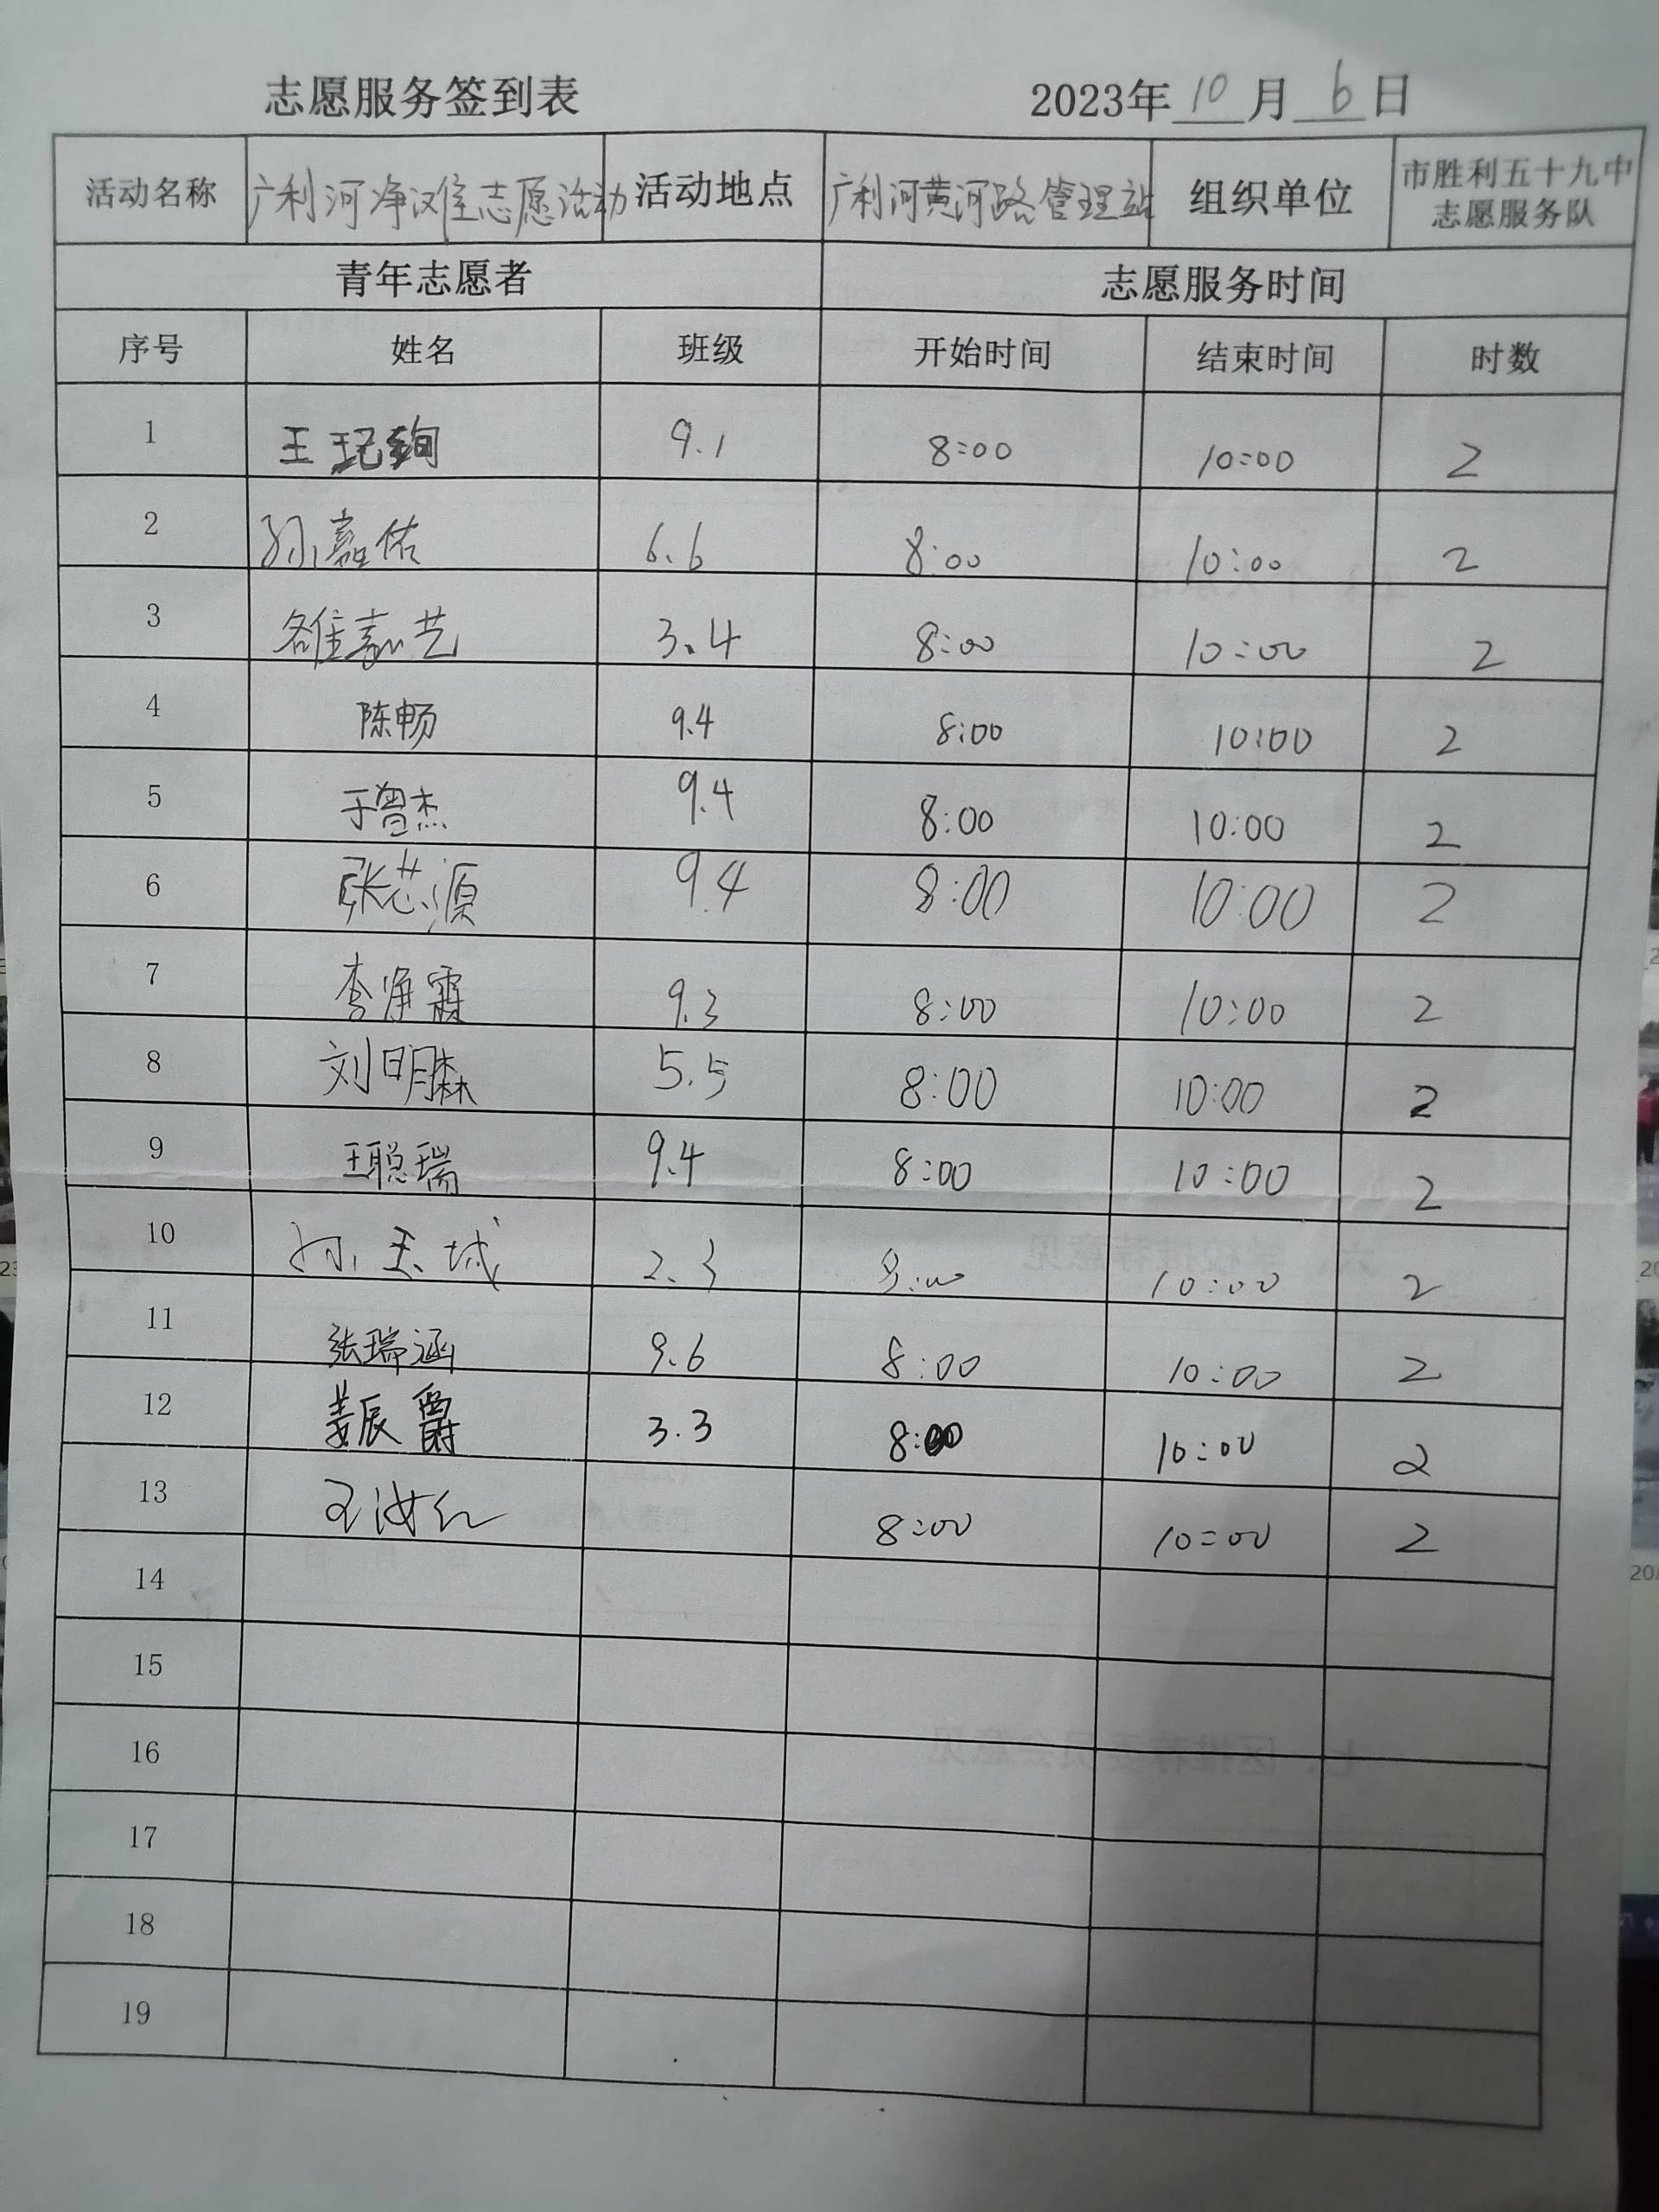 志愿服务签到表 2023年10月6日
活动名称 广利河净滩志愿活动 活动地点 广利河黄河路管理站 组织单位 市胜利五十九中志愿服务队
青年志愿者 志愿服务时间
序号 姓名 班级 开始时间 结束时间 时数
1 王玘絢 9.1 8:00 10:00 2
2 孙嘉佑 6.6 8:00 10:00 2
3 雒嘉艺 3.4 8:00 10:00 2
4 陈畅 9.4 8:00 10:00 2
5 于曾杰 9.4 8:00 10:00 2
6 张芯源 9.4 8:00 10:00 2
7 李净霖 9.3 8:00 10:00 2
8 刘明森 5.5 8:00 10:00 2
9 王聪瑞 9.4 8:00 10:00 2
10 孙 城 2.3 8:00 10:00 2
11 张瑞涵 9.6 8:00 10:00 2
12 姜辰爵 3.3 8:00 10:00 2
13 王汝红 8:00 10:00 2
14
15
16
17
18
19